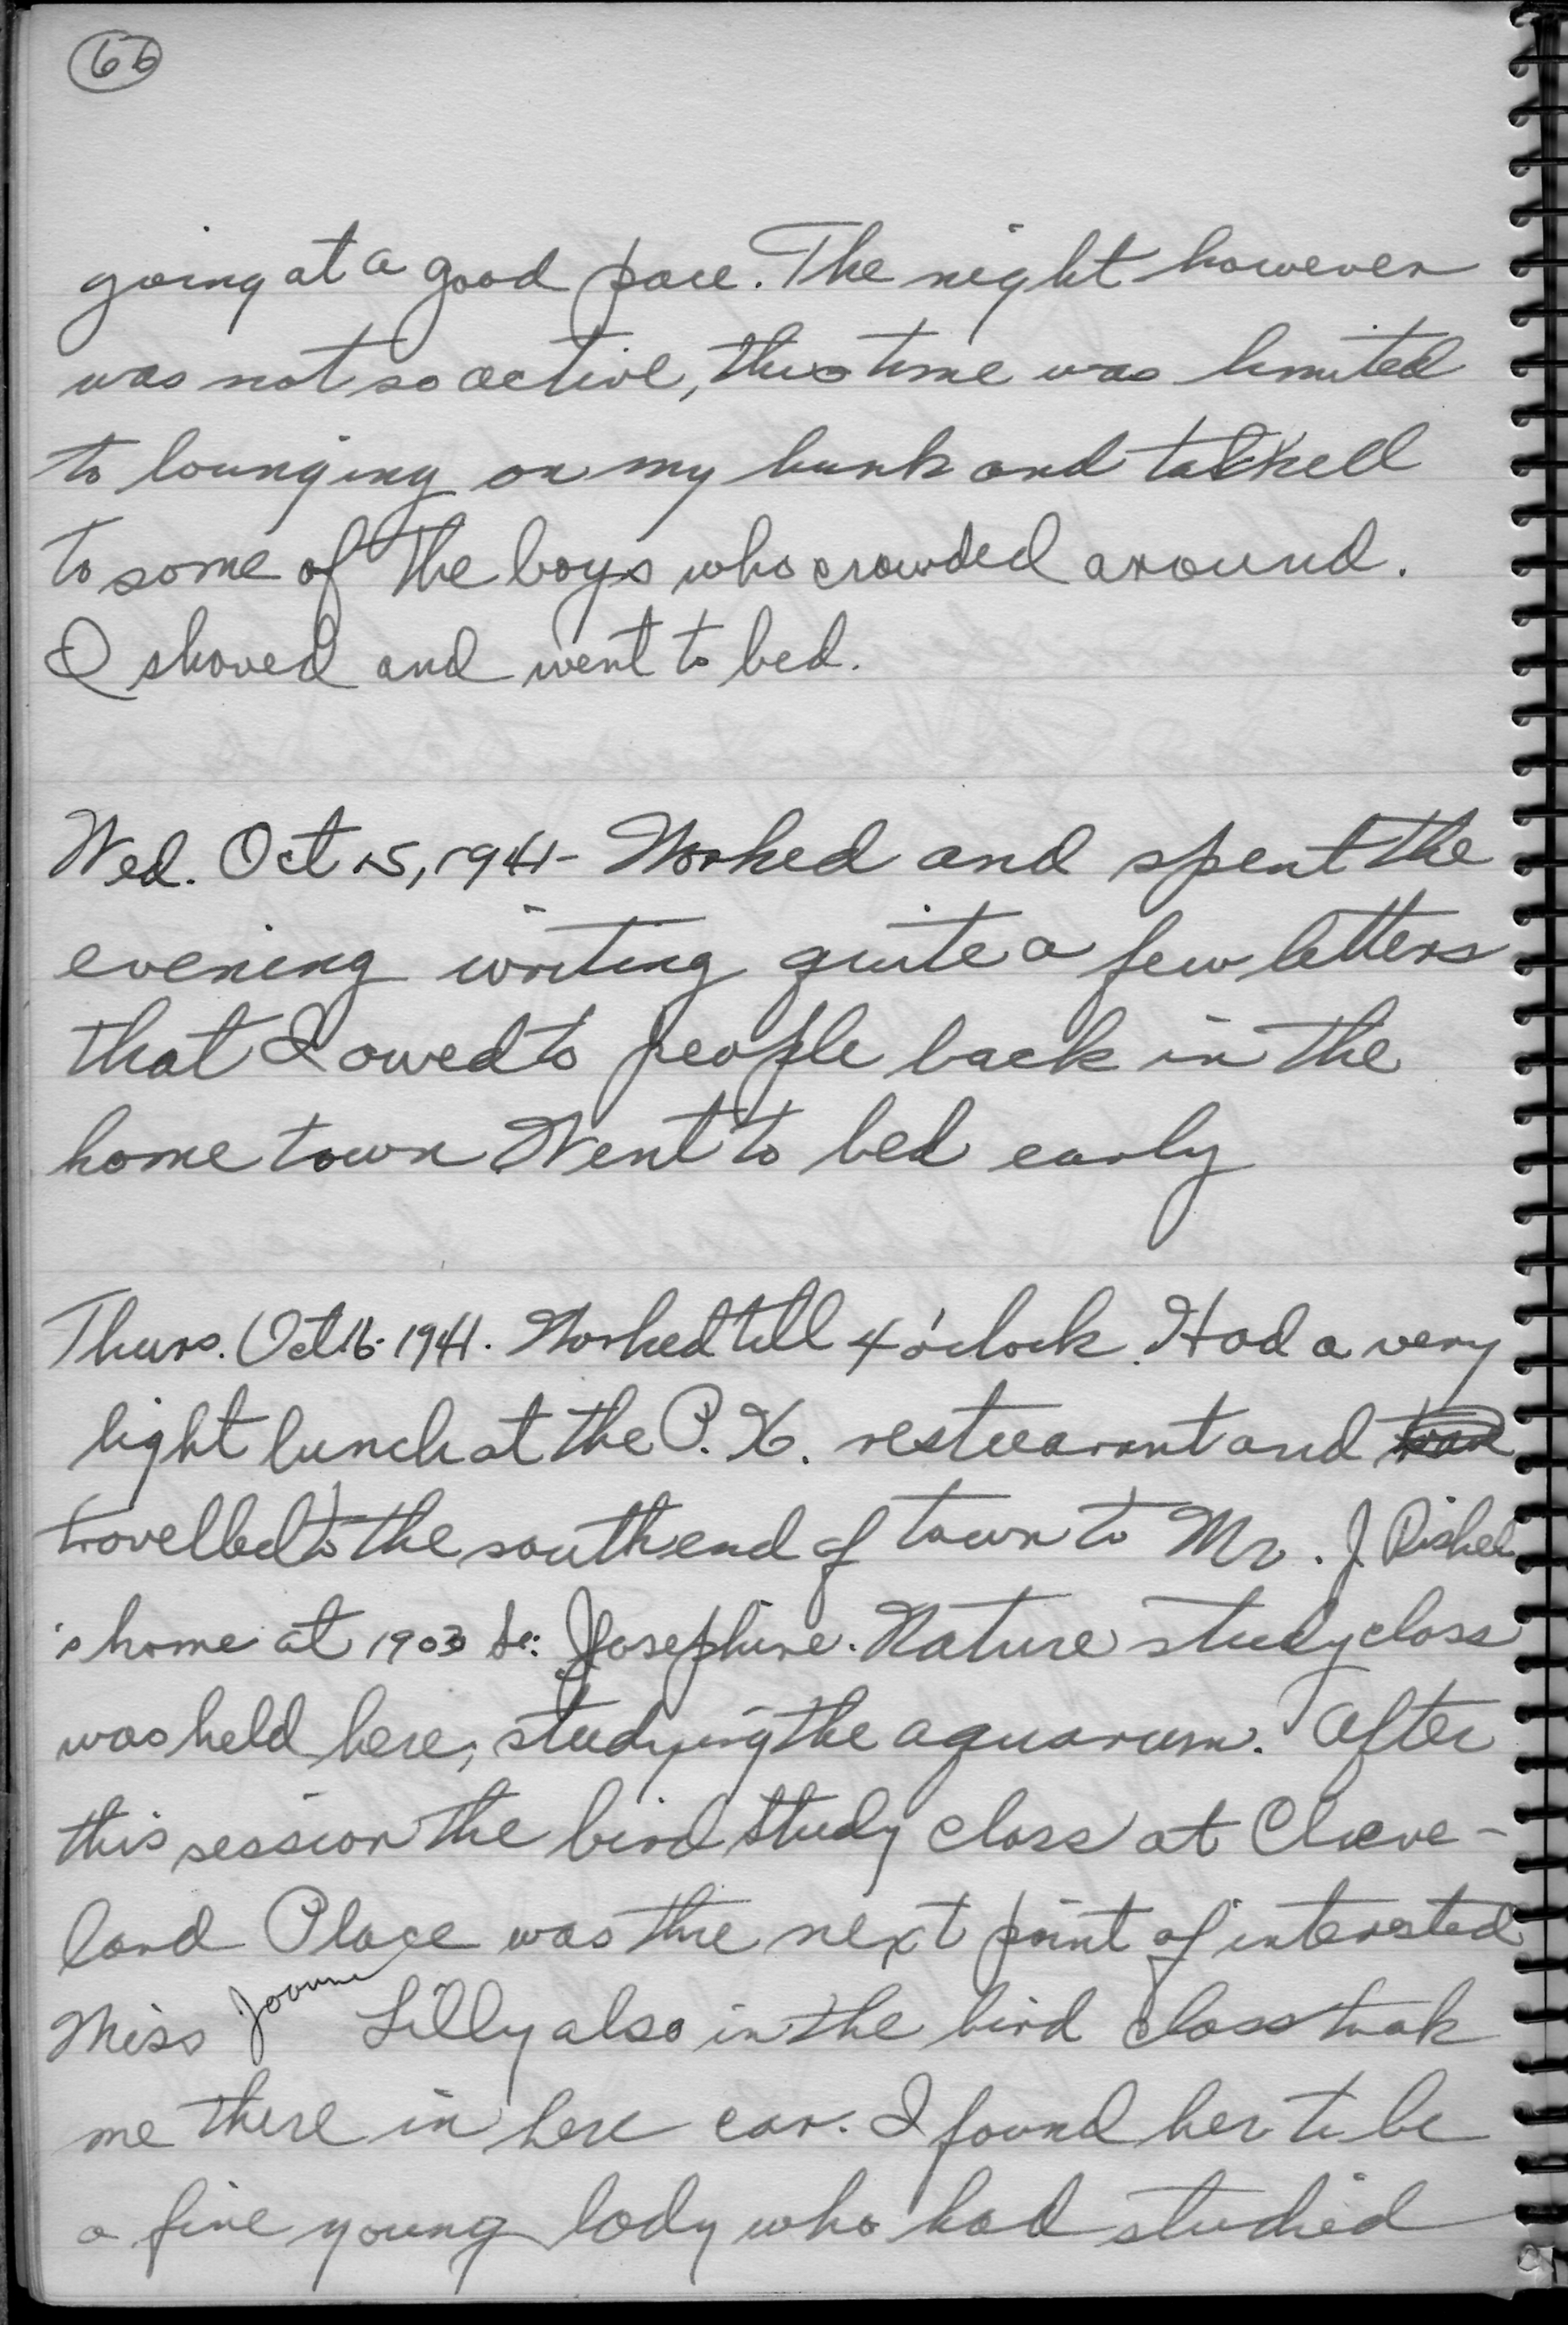 66
going at a good pace. The night however
was not so active, this time was limited
to lounging on my bunk and talked
to some of the boys who crowded around.
I shaved and went to bed.
Wed. Oct 15, 1941- Worked and spent the
evening writing quite a few letters
that I owed to people back in the
home town Went to bed early
Thurs. Oct 16. 1941. Worked till 4 o'clock. Had a very
light lunch at the P. X. restuarant and
travelled to the south end of town to Mr. J. Rishel
's home at 1903 So. Josephine. Nature study class
was held here, studying the aquarium. After
this session the bird study class at Cheve-
land Place was the next point of interested
Miss Joanne Lilly also in the bird class took
me there in here car. I found her to be
a fine young lady who had studied